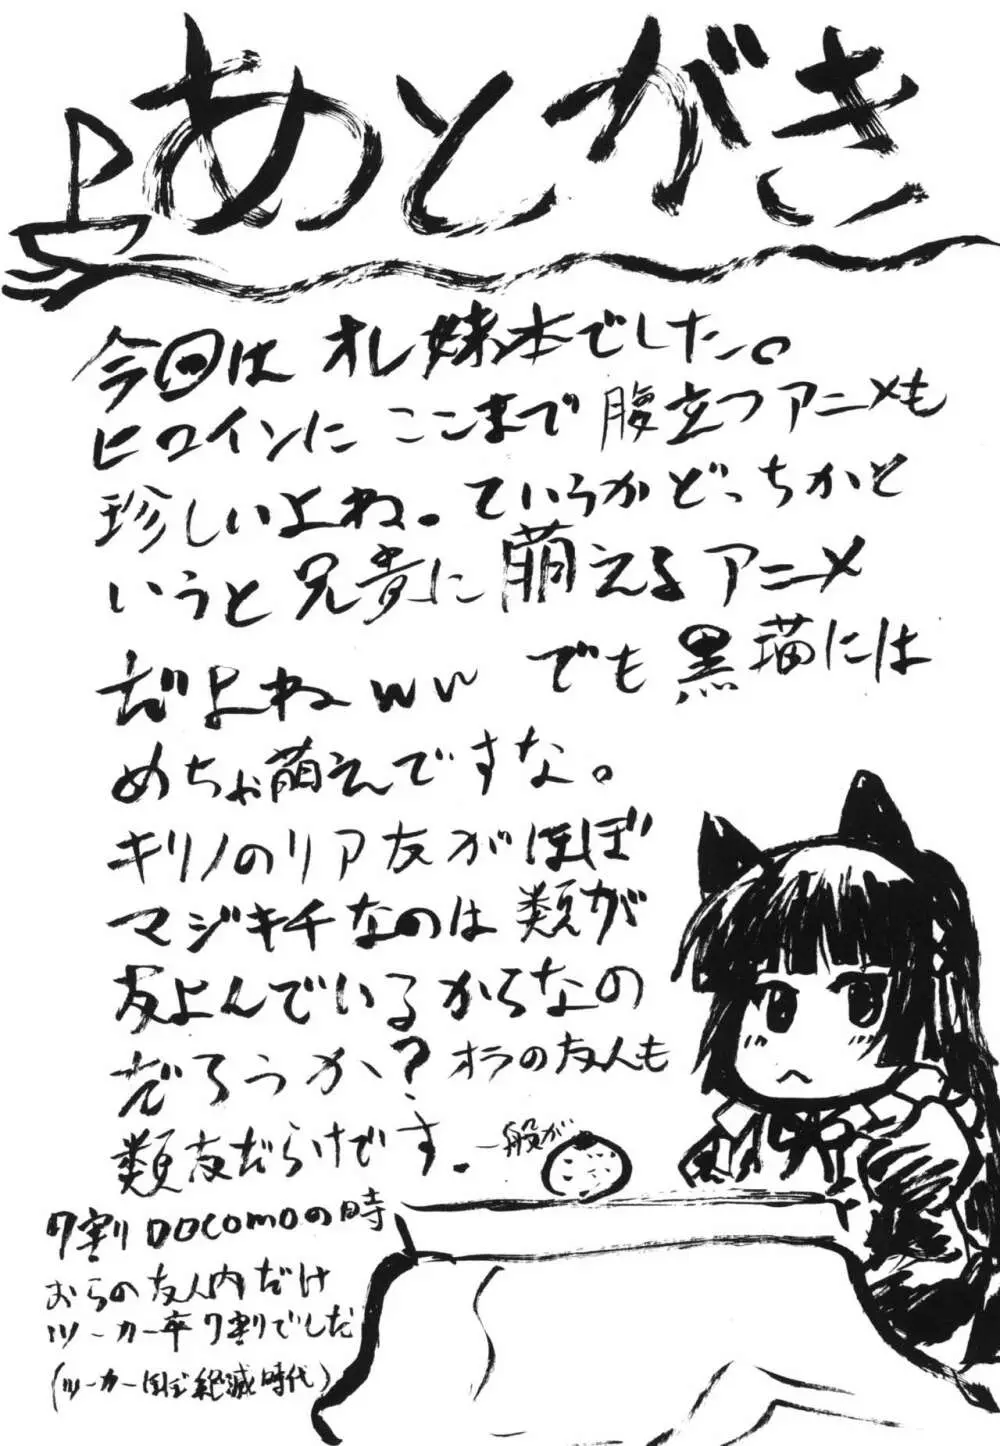 あとがき
今回は オレ妹本でした。
ヒロインに ここまで 腹立つアニメも
珍しいよね。ていうかどっちかと
いうと 兄貴に 萌えるアニメ
だよねww でも 黒猫には
めちゃ萌えですな。
キリノのリア友がほぼ
マジキチなのは 類が
友よんでいるからなの
だろうか? オラの友人も
類友だらけです。一般が
7割DOCOMOの時
おらの友人内だけ
ツーカー率7割でしただ
(ツーカーほぼ絶滅時代)